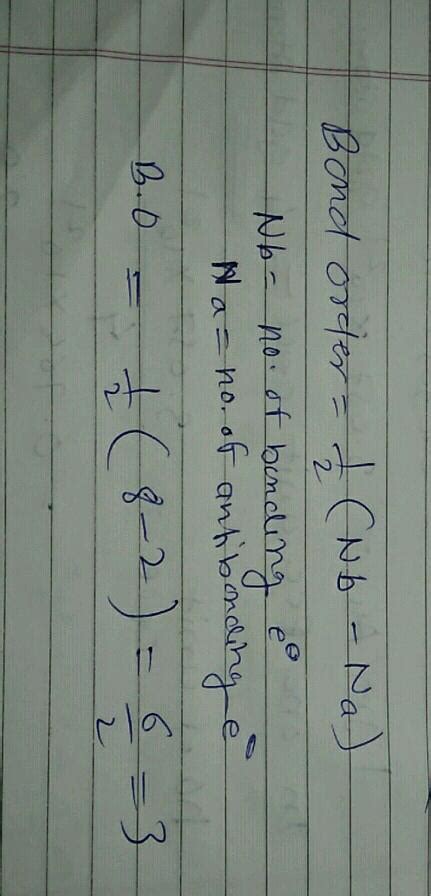 Bond order = 1/2 (Nb - Na)
Nb = no. of bonding e⊖
Na = no. of antibonding e⊖
B.O = 1/2 (8-2) = 6/2 = 3